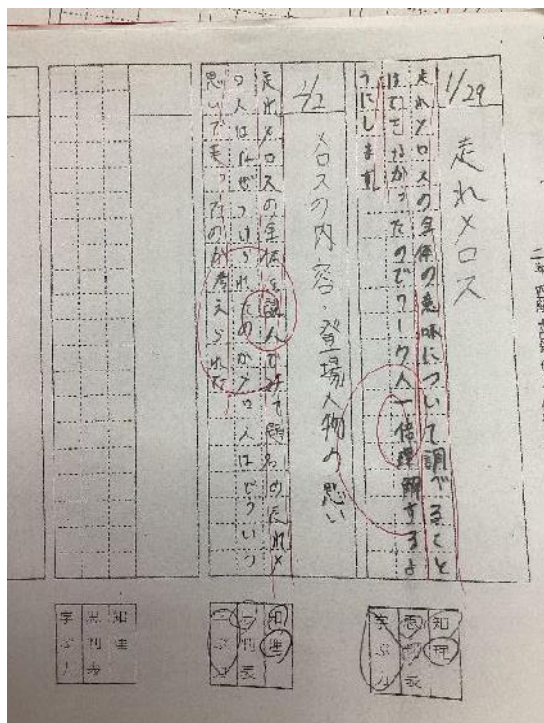 1/29
走れメロス
走れメロスの全体の意味について調べること
はできなかったのでワーク人一倍理解するよ
うにします
2/2
メロスの内容・登場人物の思い
走れメロスの全体を読んでみて題名の走れメ
ロスはなぜつけられたのかメロスはどういう
思いで走ったのか考えられた
知理
思判表
学ぶ力
知理
思判表
学ぶ力
知理
思判表
学ぶ力